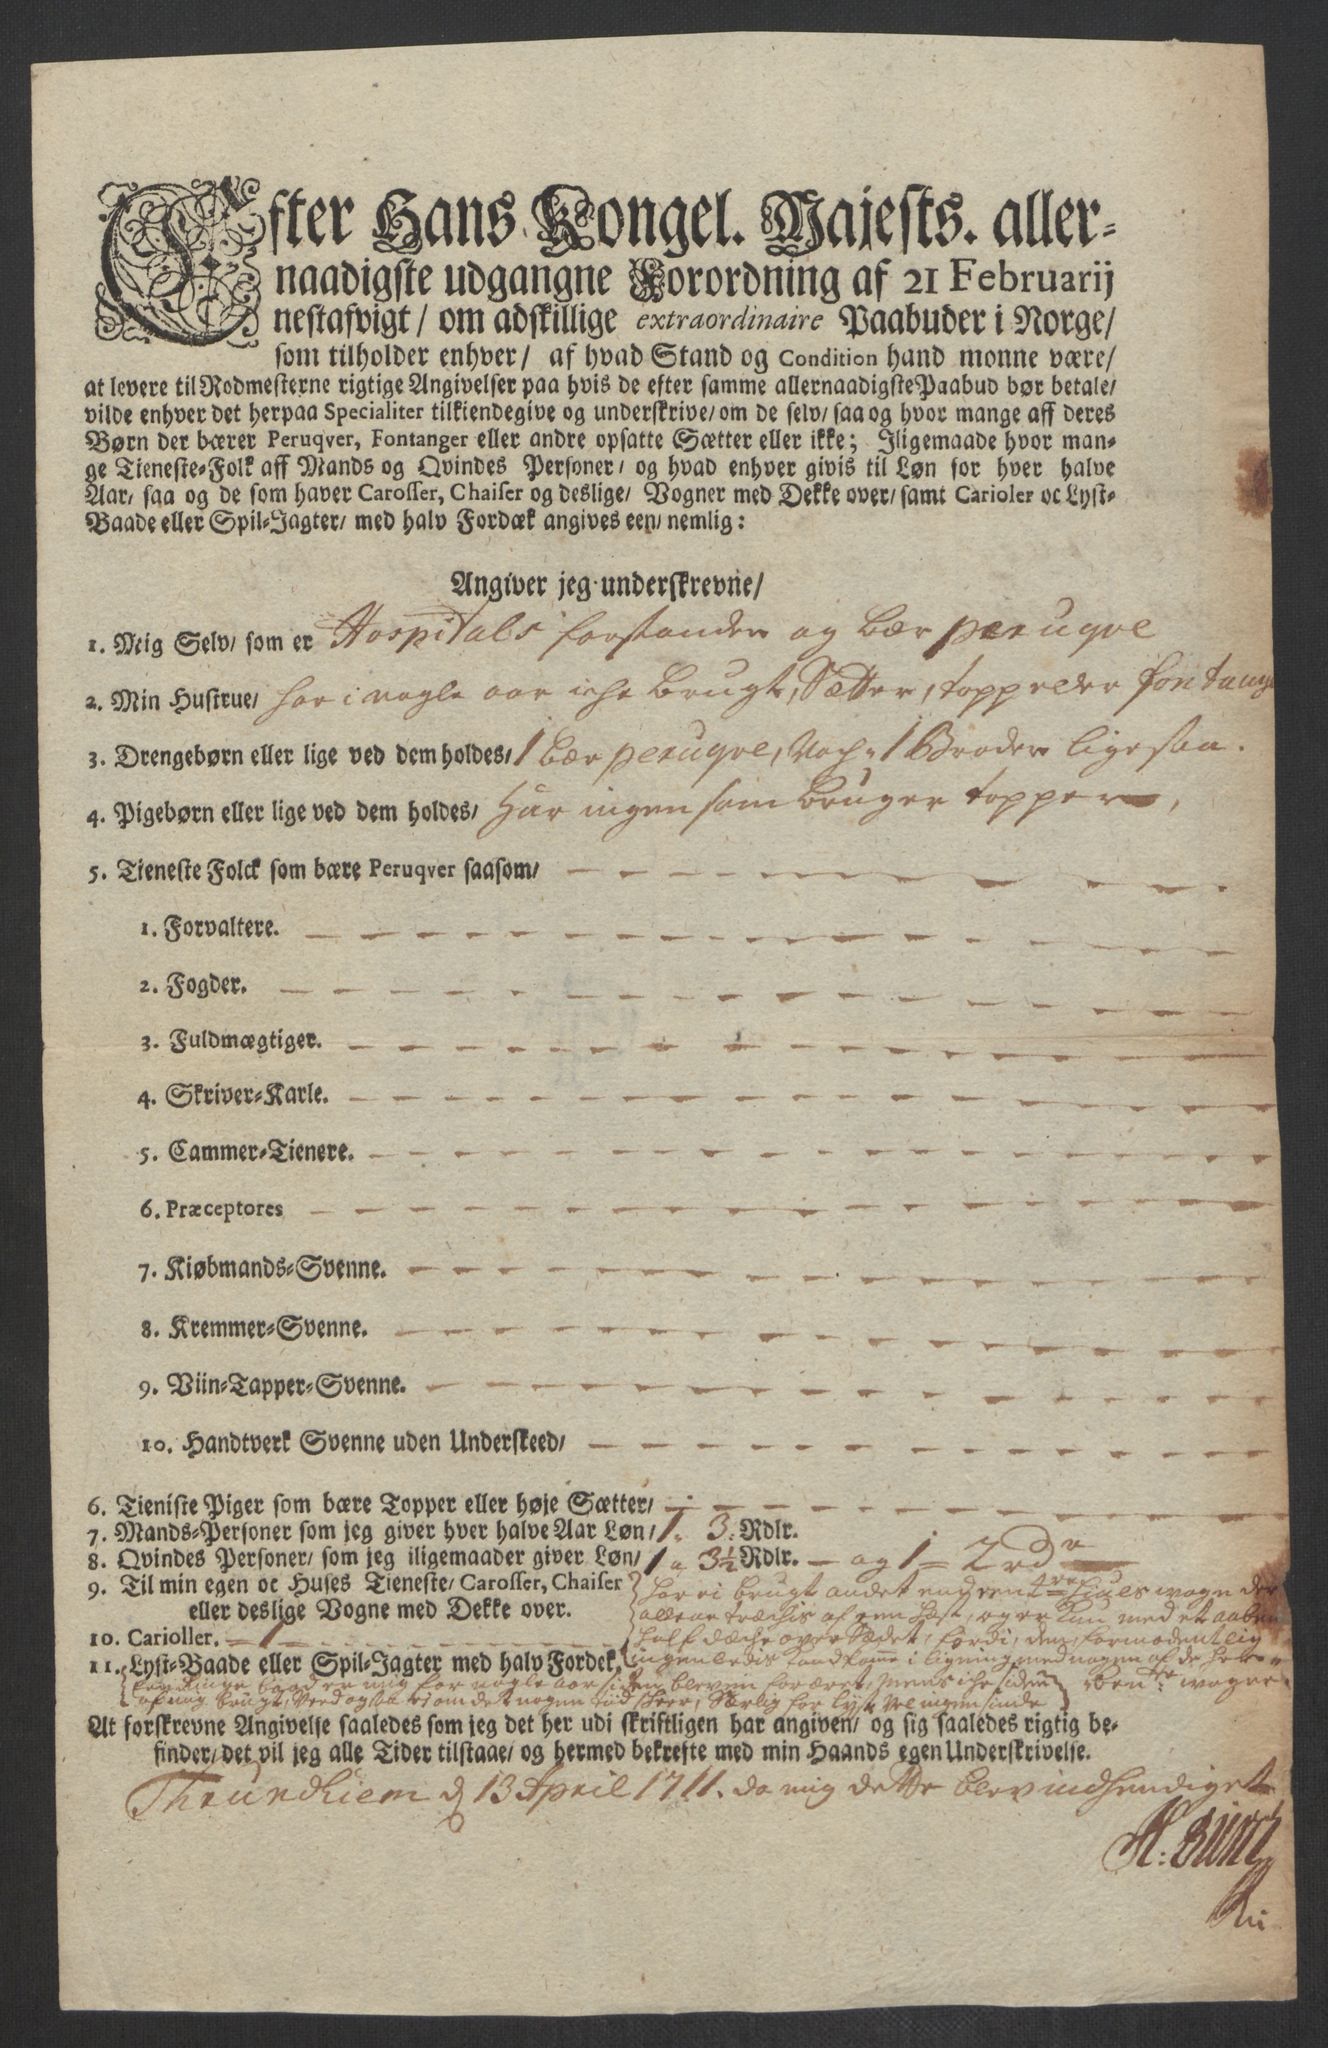 Efter Hans Kongel. Majests. aller-
naadigste udgangne Forordning af 21 Februarij
nestafvigt / om adskillige extraordinaire Paabuder i Norge /
som tilholder enhver / af hvad Stand og Condition hand monne være /
at levere til Rodmesterne rigtige Angivelser paa hvis de efter samme allernaadigste Paabud bør betale /
vilde enhver det herpaa Specialiter tilkiendegive og underskrive / om de selv / saa og hvor mange aff deres
Børn der bærer Peruqver, Fontanger eller andre opsatte Sætter eller ikke; Iligemaade hvor man-
ge Tieneste-Folk aff Mands og Qvindes Personer / og hvad enhver givis til Løn for hver halve
Aar / saa og de som haver Carosser, Chaiser og deslige / Vogner med Dekke over / samt Carioler oc Lyst-
Baade eller Spil-Jagter / med halv Fordæk angives een / nemlig:
Angiver jeg underskrevne /
1. Mig Selv / som er Hospitals forstander og bær peruqve
2. Min Hustrue / har i nogle aar iche brugt, Sætter, topper eller fontange
3. Drengebørn eller lige ved dem holdes / 1 bær peruqve, Noch 1 Broder ligesaa.
4. Pigebørn eller lige ved dem holdes / Har ingen som bruger topper,
5. Tieneste Folck som bære Peruqver saasom /
1. Forvaltere.
2. Fogder.
3. Fuldmægtiger.
4. Skriver-Karle.
5. Cammer-Tienere.
6. Præceptores
7. Kiøbmands-Svenne.
8. Kremmer-Svenne.
9. Viin-Tapper-Svenne.
10. Handtverk Svenne uden Underskeed /
6. Tieniste Piger som bære Topper eller høje Sætter /
7. Mands-Personer som jeg giver hver halve Aar Løn / 1 a 3 Rdlr.
8. Qvindes Personer / som jeg iligemaader giver Løn / 1 a 3½ Rdlr. og 1 = 2 rdr
9. Til min egen oc Huses Tieneste / Carosser, Chaiser har ei brugt andet end een hiuls wogn der
eller deslige Vogne med Dekke over. allene træchis af een hæst, og er kun med et aaben
10. Carioller. 1 half dæche over Sædet, fordi, den formodentlig
11. Lyst-Baade eller Spil-Jagter med halv Fordek, ingenledis kand kome i ligning med nogen af de
baad er mig for nogle aar siden bleven foræret, mens iche siden
af mig brugt, ved og om det nogen tiid scheer, Særlig for lyst vel ingensinde
At forskrevne Angivelse saaledes som jeg det her udi skriftligen har angiven / og sig saaledes rigtig be-
finder / det vil jeg alle Tider tilstaae / og hermed bekrefte med min Haands egen Underskrivelse.
Thrundhiem d 13 April 1711. da mig dette blev indhendiget